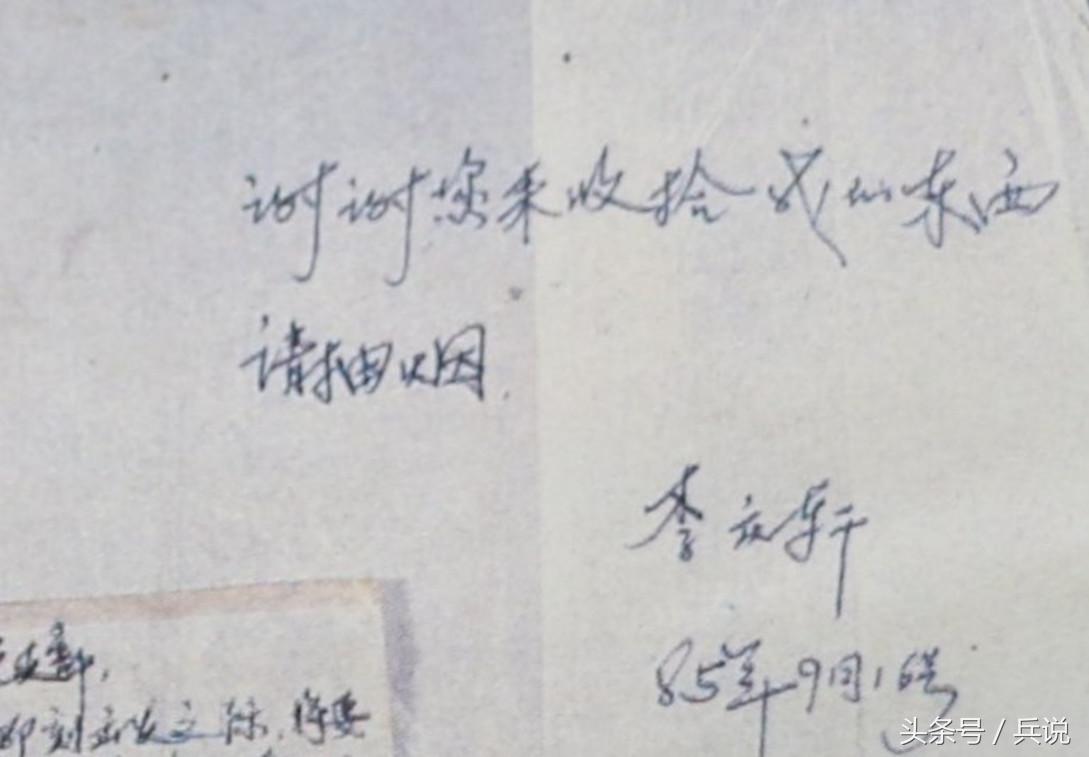 谢谢您来收拾我的东西
请抽烟.
李庆轩
85年9月16号
即刻出发之际,将要
头条号 / 兵说